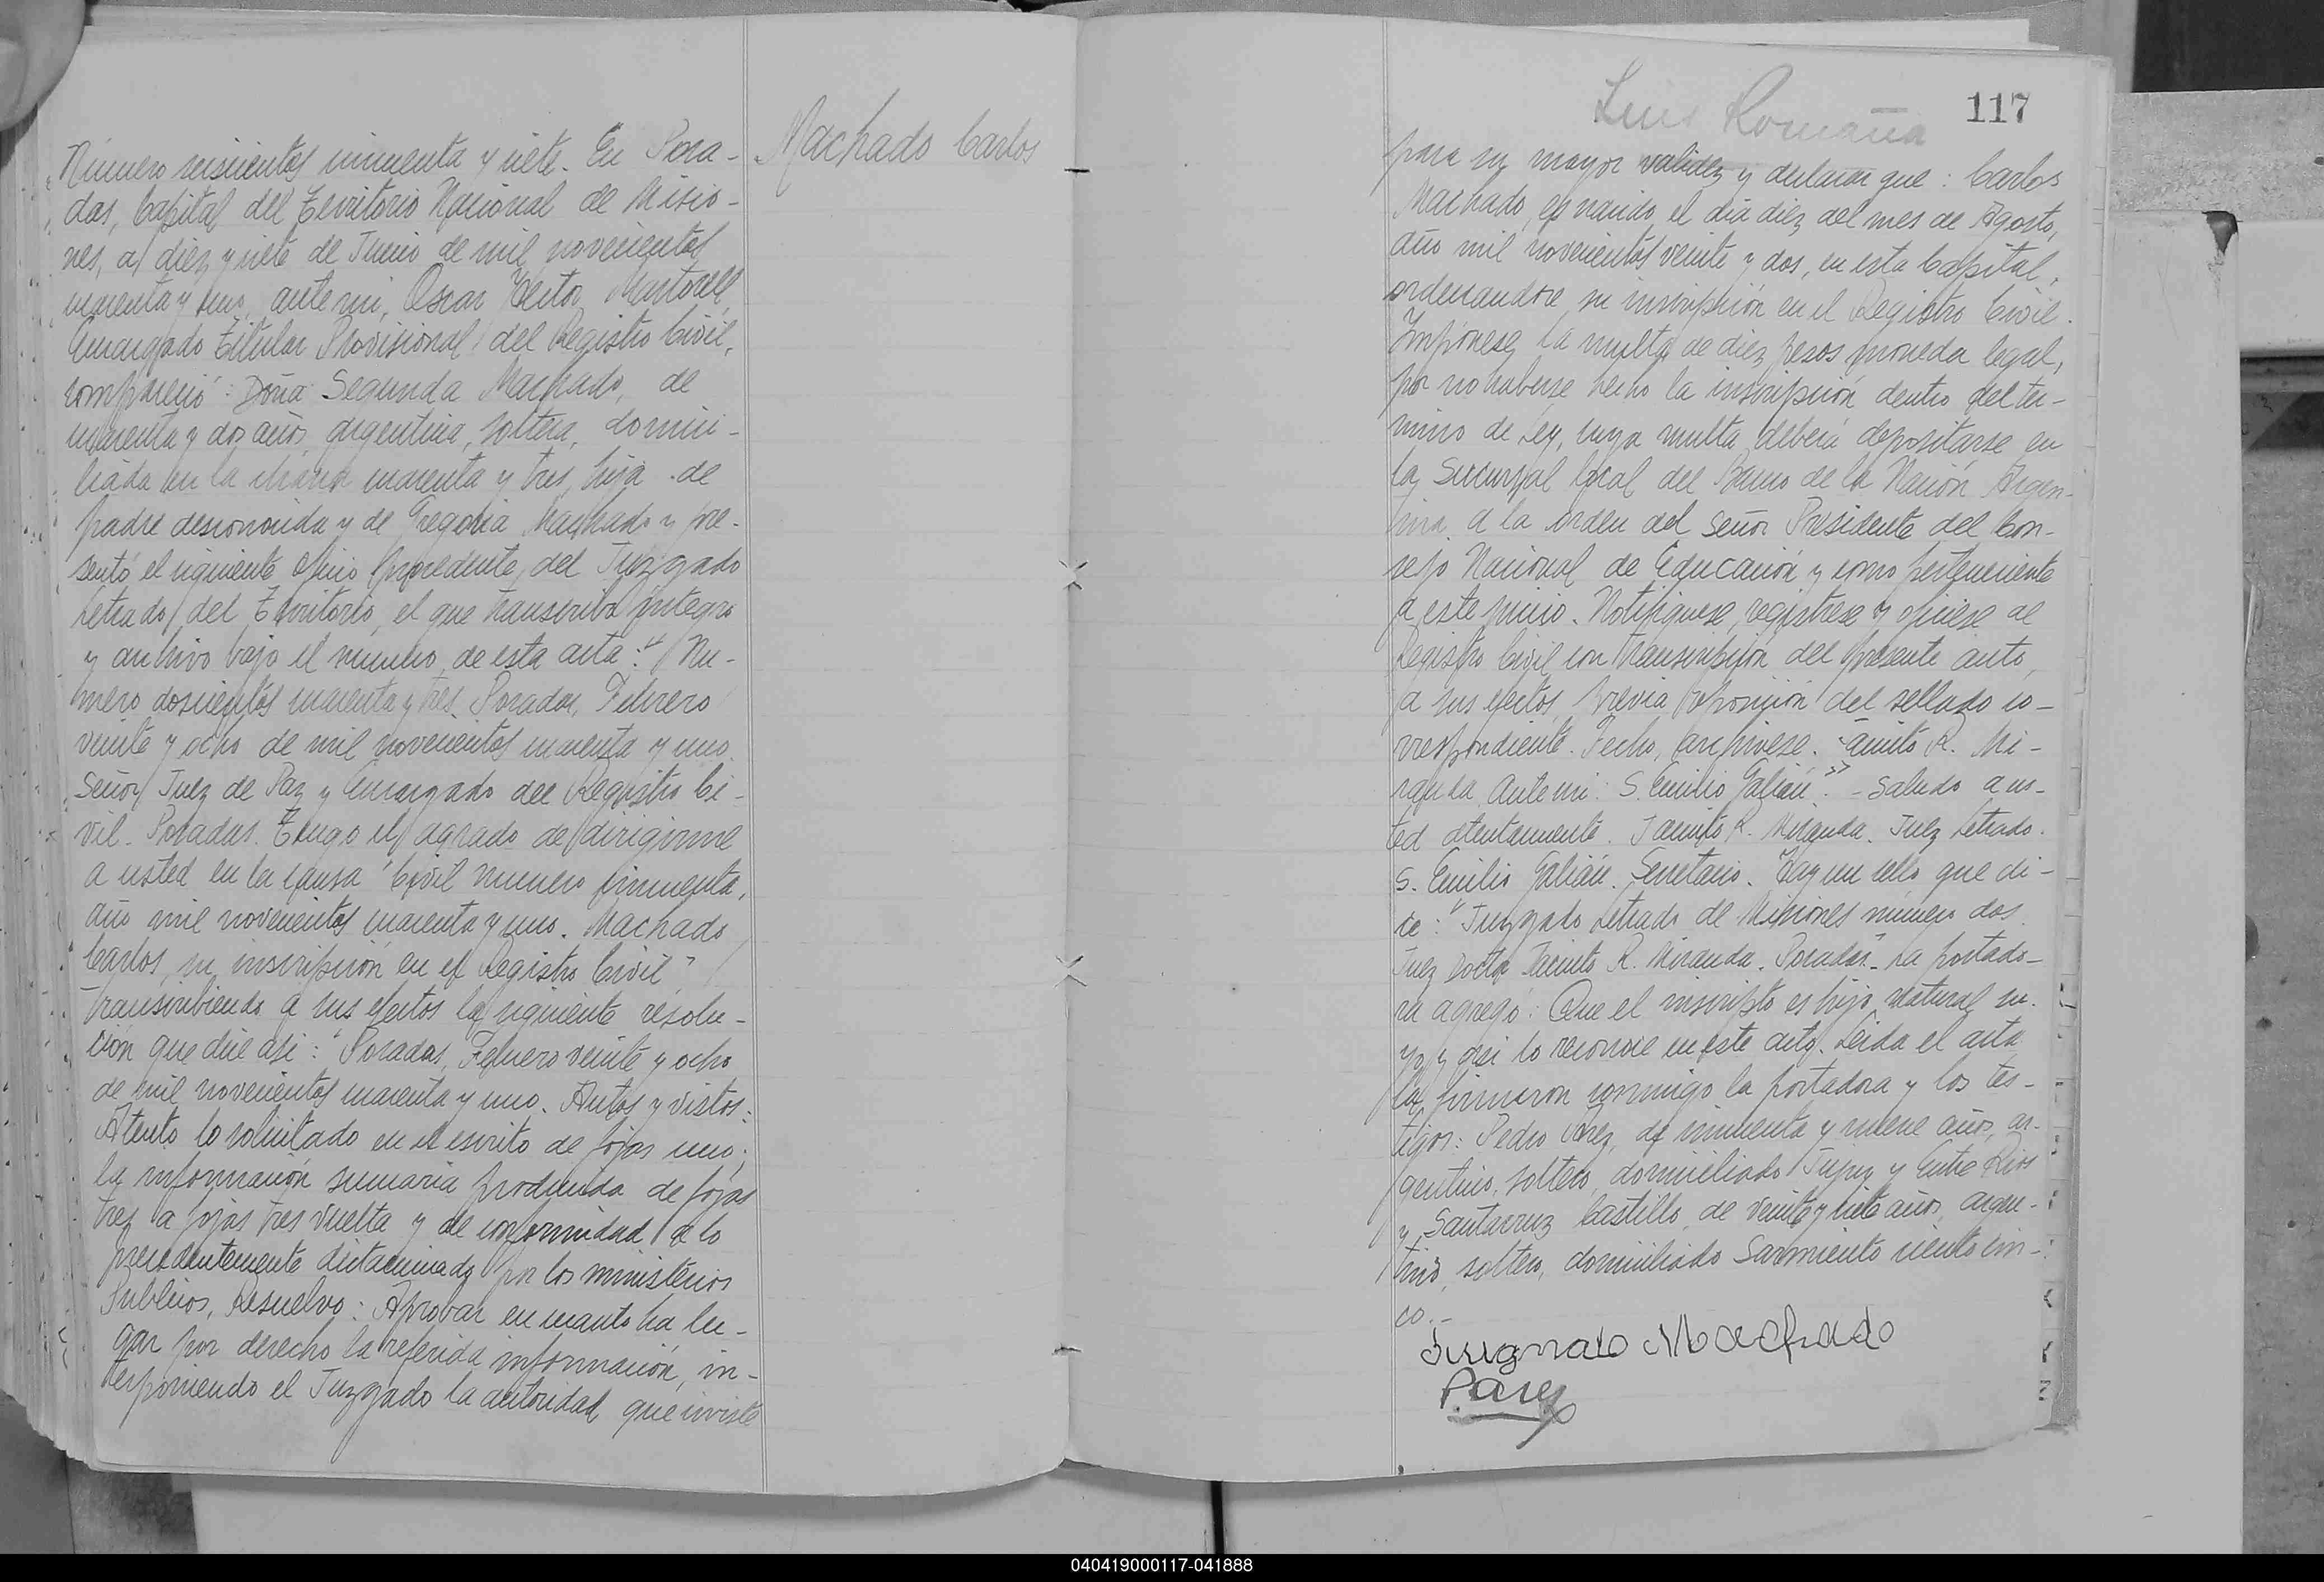 Número seiscientos cincuenta y siete. En Posa-
das, Capital del Territorio Nacional de Misio-
nes, a diez y siete de Junio de mil novecientos
cuarenta y uno, ante mi, Oscar Hector Martorell
Encargado Titular Provisional del Registro Civil,
compareció: Doña Segunda Machado, de
cuarenta y dos años, argentina, soltera, domici-
liada en la chacra cuarenta y tres, hija de
padre desconocido y de Gregoria Machado y pre-
sentó el siguiente oficio procedente del Juzgado
Letrado del Territorio, el que transcribo integro
y archivo bajo el numero de esta acta: "Nu-
mero doscientos cuarenta y tres. Posadas, Febrero
veinte y ocho de mil novecientos cuarenta y uno.
Señor Juez de Paz y Encargado del Registro Ci-
vil. Posadas. Tengo el agrado de dirigirme
a usted en la causa "Civil numero cincuenta,
año mil novecientos cuarenta y uno. Machado
Carlos, su inscripción en el Registro Civil"
transcribiendo a sus efectos la siguiente resolu-
ción que dice asi: "Posadas, Febrero veinte y ocho
de mil novecientos cuarenta y uno. Autos y vistos:
Atento lo solicitado en el escrito de fojas uno;
la información sumaria producida de fojas
tres a fojas tres vuelta y de conformidad a lo
precedentemente dictaminado por los ministerios
Publicos, Resuelvo: Aprobar en cuanto ha lu-
gar por derecho la referida información, in-
terponiendo el Juzgado la autoridad que inviste
Machado Carlos
Luis Romaña
117
para su mayor validez y declarar que: Carlos
Machado, es nacido el dia diez del mes de Agosto,
año mil novecientos veinte y dos, en esta Capital,
ordenandose su inscripción en el Registro Civil.
Impónese la multa de diez pesos moneda legal,
por no haberse hecho la inscripción dentro del tér-
mino de Ley, cuya multa deberá depositarse en
la Sucursal local del Banco de la Nación Argen-
tina, a la orden del Señor Presidente del Con-
sejo Nacional de Educación y como perteneciente
a este juicio. Notifiquese, registrese y oficiese al
Registro Civil con transcripción del presente auto,
a sus efectos, previa reposición del sellado co-
rrespondiente. Fecho, archivese. Jacinto R. Mi-
randa. Ante mi: S. Emilio Galián." - Saludo a us-
ted atentamente. Jacinto R. Miranda. Juez Letrado.
S. Emilio Galián. Secretario. Hay un sello que di-
ce: "Juzgado Letrado de Misiones número dos.
Juez Doctor Jacinto R. Miranda. Posadas". La portado-
ra agregó: Que el inscripto es hijo natural su-
yo y asi lo reconoce en este acto. Leida el acta
la firmaron conmigo la portadora y los tes-
tigos: Pedro de cincuenta y nueve años, ar-
gentino, soltero, domiciliado Jujuy y Entre Rios
y Santacruz Castillo, de veinte y siete años, argen-
tino, soltero, domiciliado Sarmiento ciento cin-
co.-
Machado
040419000117-041888